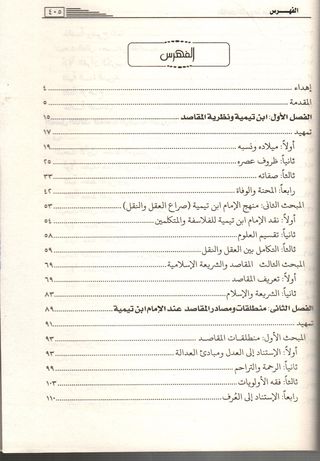 الفهرس
٤٠٥
الفهرس
إهداء ٤
المقدمة ٥
الفصل الأول: ابن تيمية ونظرية المقاصد ١٥
تمهيد ١٧
أولاً: ميلاده ونسبه ١٩
ثانياً: ظروف عصره ٢٥
ثالثاً: صفاته ٣٣
رابعاً: المحنة والوفاة ٤٢
المبحث الثاني: منهج الإمام ابن تيمية (صراع العقل والنقل) ٥٣
أولاً: نقد الإمام ابن تيمية للفلاسفة والمتكلمين ٥٤
ثانياً: تقسيم العلوم ٥٨
ثالثاً: التكامل بين العقل والنقل ٥٩
المبحث الثالث المقاصد والشريعة الإسلامية ٦٩
أولاً: تعريف المقاصد ٦٩
ثانياً: الشريعة والإسلام ٨٣
الفصل الثاني: منطلقات ومصادر المقاصد عند الإمام ابن تيمية ٨٩
تمهيد ٩١
المبحث الأول: منطلقات المقاصد ٩٣
أولاً: الإستناد إلى العدل ومبادئ العدالة ٩٣
ثانياً: الرحمة والتراحم ٩٩
ثالثاً: فقه الأولويات ١٠٣
رابعاً: الإستناد إلى العُرف ١١٠